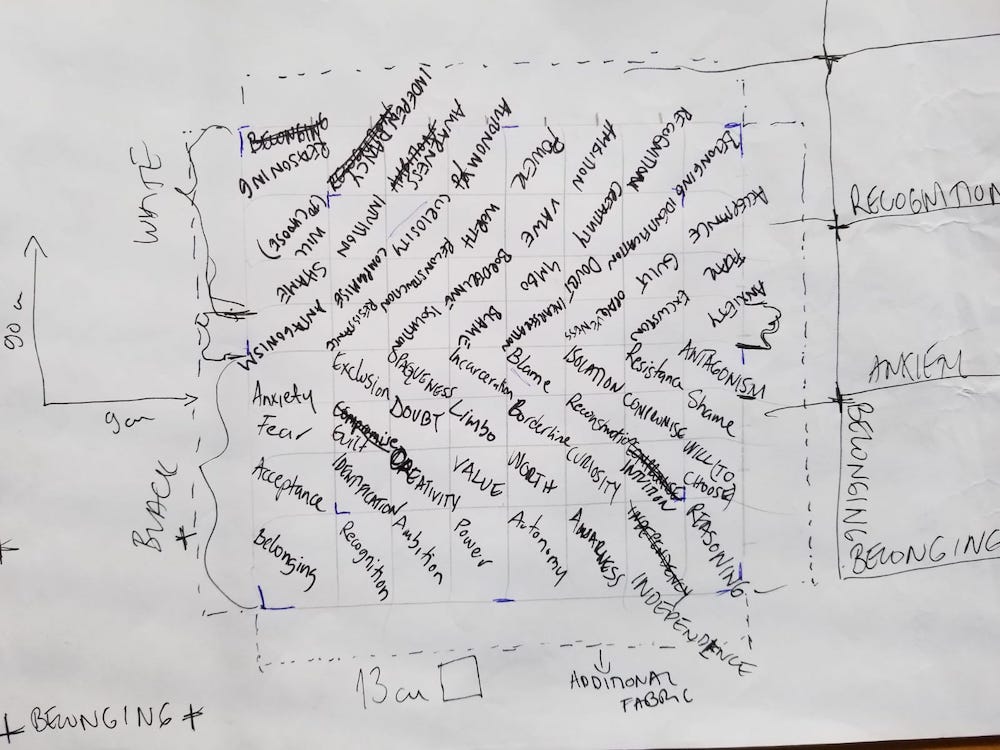 INDEPENDANCY
BELONGING
REASONING
AWARNESS
AUTONOMY
POWER
AMBITION
RECOGNITION
BELONGING
WHITE
(TO CHOOSE)
WILL
INTUITION
CURIOSITY
WORTH
VALUE
CREATIVITY
IDENTIFICATION
ACCEPTANCE
RECOGNITION
SHAME
COMPROMISE
RECONSTRUCTION
BORDERLINE
LIMBO
DOUBT
GUILT
FEAR
ANTAGONISM
RESISTANCE
ISOLATION
BLAME
INCARCERATION
OPAQUENESS
EXCLUSION
ANXIETY
90 cm
9 cm
Anxiety
Exclusion
OPAQUENESS
Incarceration
Blame
ISOLATION
Resistance
ANTAGONISM
Fear
Compromise
Guilt
DOUBT
Limbo
Borderline
Reconstruction
COMPROMISE
Shame
Acceptance
IDENTIFICATION
CREATIVITY
VALUE
WORTH
CURIOSITY
INTUITION
WILL (TO
CHOOSE)
BLACK
*
Belonging
Recognition
Ambition
Power
Autonomy
AWARNESS
INDEPENDENCY
INDEPENDENCE
REASONING
BELONGING
BELONGING
13 cm
ADDITIONAL
FABRIC
* BELONGING *